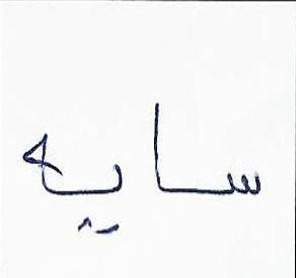 سایه